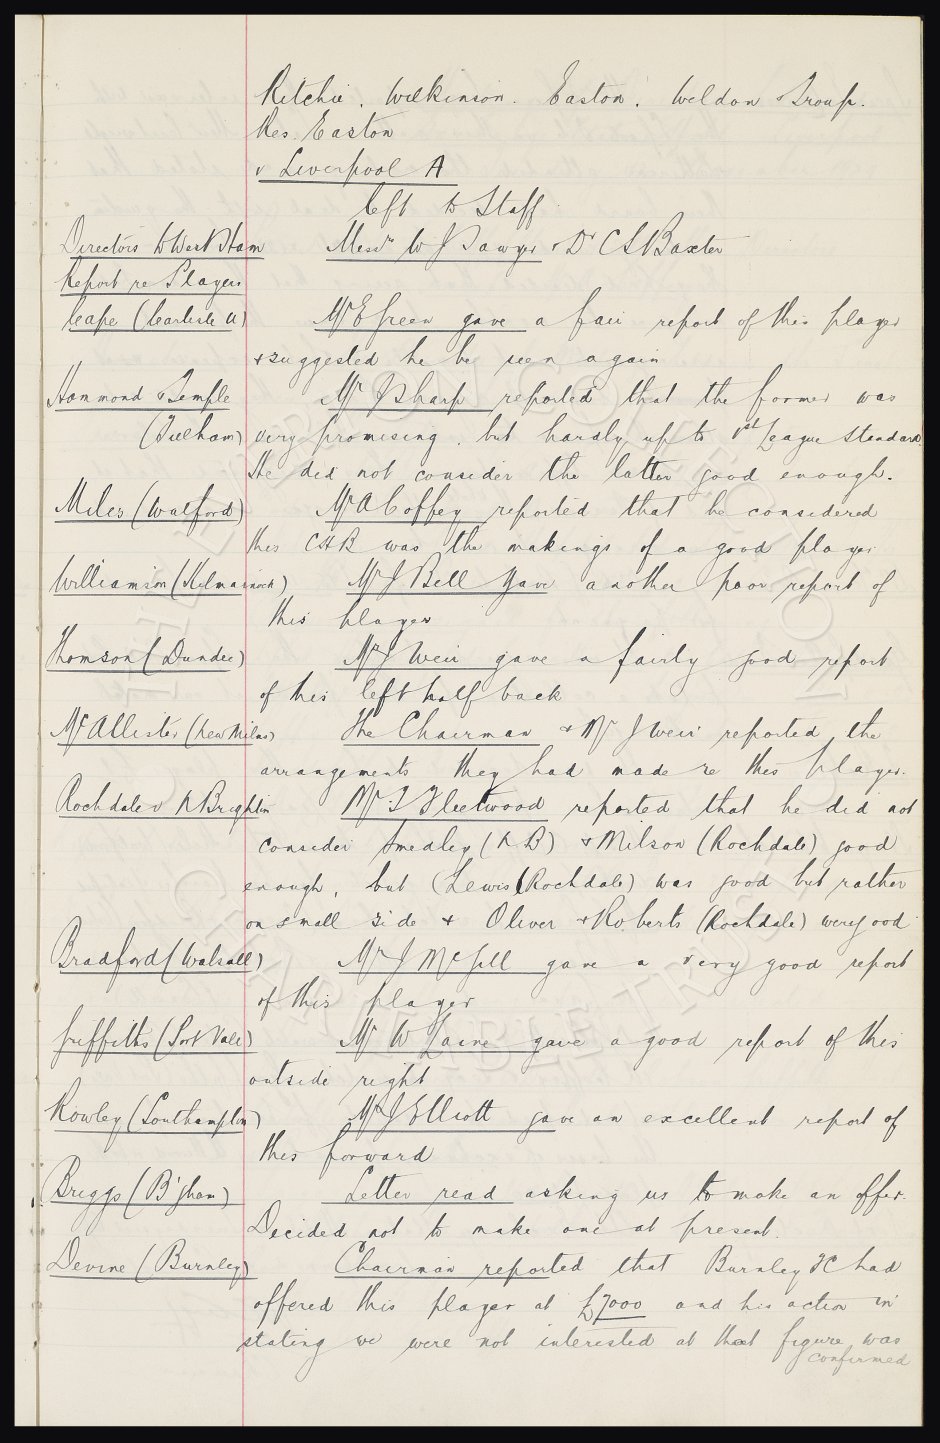 Ritchie. Wilkinson. Easton. Weldon & Troup.
Res. Easton
v Liverpool A
Left to Staff
Directors to West Ham Messrs W J Sawyer & Dr C S Baxter
Report re Players
Cape (Carlisle U) Mr E Green gave a fair report of this player
& suggested he be seen again
Hammond & Temple Mr J Sharp reported that the former was
(Fulham) very promising, but hardly up to 1st League standard.
He did not consider the latter good enough.
Miles (Watford) Mr A Coffey reported that he considered
this CHB was the makings of a good player
Williamson (Kilmarnock) Mr J Bell gave another poor report of
this player
Thomson (Dundee) Mr J Weir gave a fairly good report
of this left half back
McAllister (New Milns) The Chairman & Mr J Weir reported the
arrangements they had made re this player.
Rochdale v N Brighton Mr T Fleetwood reported that he did not
consider Smedley (N B) & Milson (Rochdale) good
enough, but Lewis (Rochdale) was good but rather
on small side & Oliver & Roberts (Rochdale) were good
Bradford (Walsall) Mr J McGill gave a very good report
of this player
Griffiths (Port Vale) Mr W Laine gave a good report of this
outside right
Rowley (Southampton) Mr J Elliott gave an excellent report of
this forward
Briggs (B'gham) Letter read asking us to make an offer.
Decided not to make one at present.
Devine (Burnley) Chairman reported that Burnley FC had
offered this player at £7000 and his action in
stating we were not interested at that figure was
confirmed